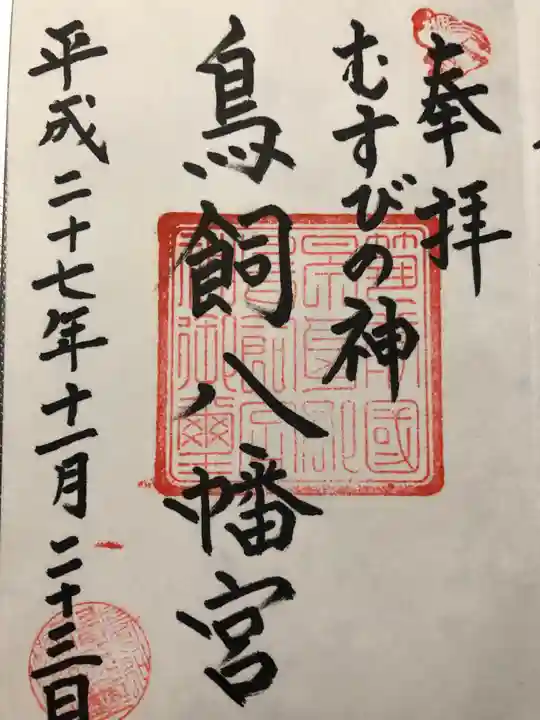 奉拝
むすびの神
鳥飼八幡宮
平成二十七年十一月二十三日